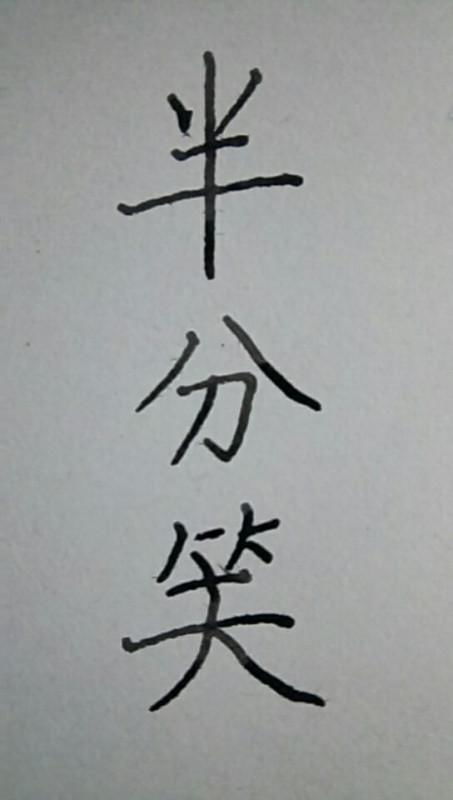 半分笑